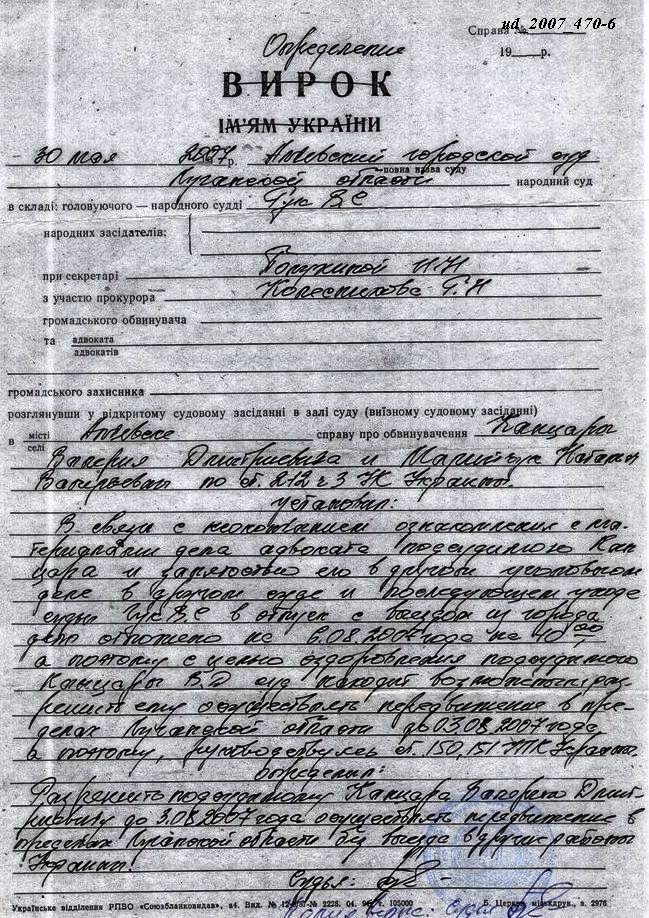 ud_2007_470-6
Справа №
Определение
19 р.
ВИРОК
ІМ'ЯМ УКРАЇНИ
30 мая 2007 р. Алчевский городской суд
повна назва суду
Луганской области народний суд
в складі: головуючого — народного судді Гук В.С
народних засідателів:
при секретарі Полухиной И.Н
з участю прокурора Колесникова Г.Н
громадського обвинувача
та адвоката
адвокатів
громадського захисника
розглянувши у відкритому судовому засіданні в залі суду (виїзному судовому засіданні)
в місті Алчевске справу про обвинувачення Канцары
селі
Валерия Дмитриевича и Марийчук Натальи
Валерьевны по ст. 212 ч 3 УК Украины.
установил:
В связи с неокончанием ознакомления с ма-
териалами дела адвоката подсудимого Кан-
цара и занятостью его в другом уголовном
деле в другом суде и последующем уходе
судьи Гук В.С в отпуск с выездом из города
дело отложено на 6.08.2007 года на 10 00,
а потому с целью оздоровления подсудимого
Канцары В.Д суд находит возможным раз
решить ему осуществлять передвижение в пре-
делах Луганской области до 03.08.2007 года,
а поэтому, руководствуясь ст. 150, 151 УПК Украины
определил:
Разрешить подсудимому Канцара Валерию Дмит
риевичу до 3.08.2007 года осуществлять передвижение в
пределах Луганской области без выезда в другие районы
Украины.
Судья:
Українське відділення РПВО «Союзбланковидав», а4. Вид. № 2228. 04. т. 105000 Б. Церк. міськдрук., з. 2976